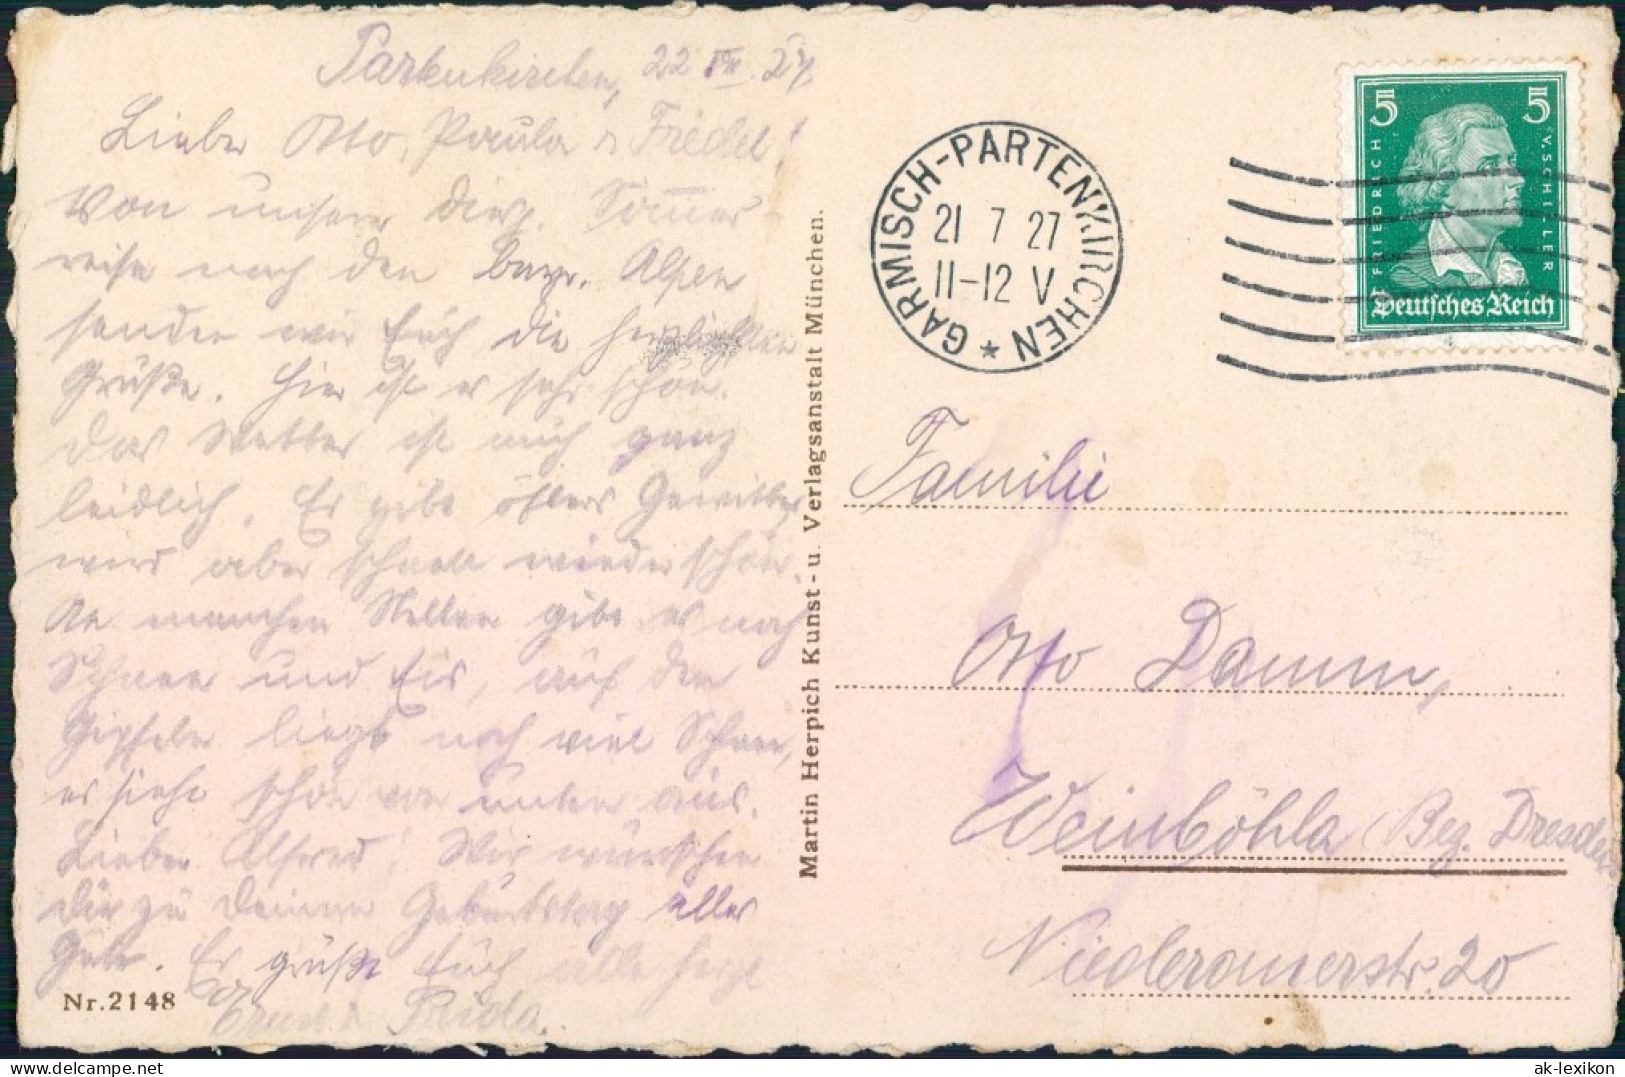 Partenkirchen, 22 VII. 27.
Lieber Otto, Paula u Friedel!
Von unserer diesj. Sommer-
reise nach den bayr. Alpen
senden wir Euch die herzlichsten
Grüße. Hier ist es sehr schön.
Das Wetter ist auch ganz
leidlich. Es gibt öfters Gewitter
wird aber schnell wieder schön.
An manchen Stellen gibt es noch
Schnee und Eis, auf den
Gipfeln liegt noch viel Schnee,
es sieht schön von unten aus.
Lieber Alfred! Wir wünschen
Dir zu Deinem Geburtstag alles
Gute. Es grüßt Euch alle herzl
Ernst u Frieda.
Nr. 2148
Martin Herpich Kunst- u. Verlagsanstalt München.
GARMISCH-PARTENKIRCHEN
21 7 27
11-12 V
5 5
FRIEDRICH V. SCHILLER
Deutsches Reich
Familie
Otto Damm,
Weinböhla (Bez. Dresden
Niederauerstr. 20
ak-lexikon